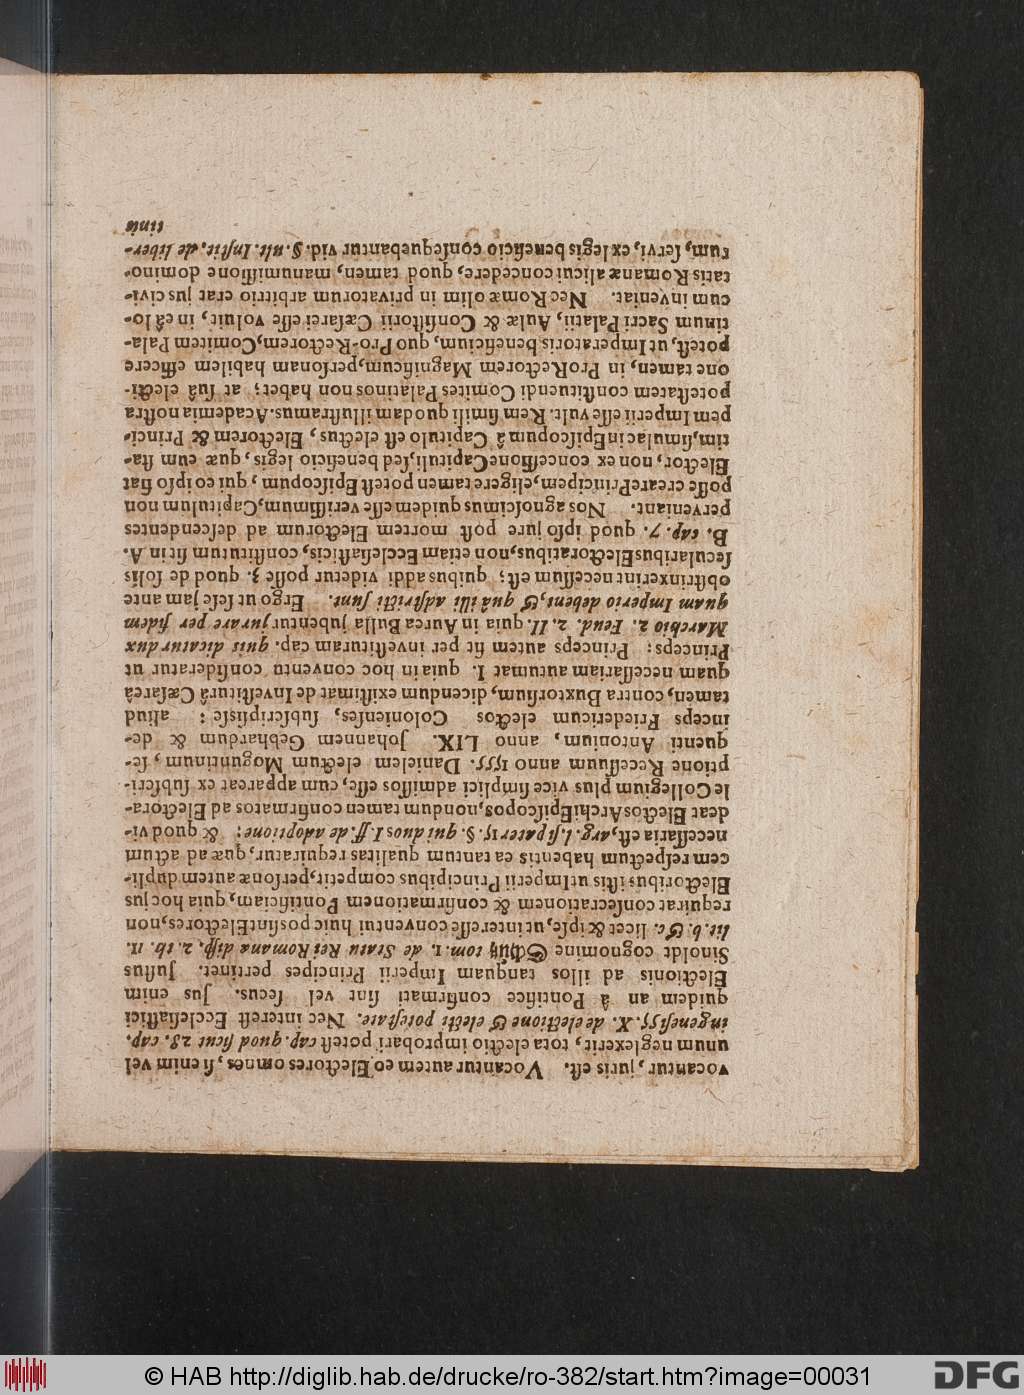 vocantur, juris eſt. Vocantur autem eo Electores omnes, ſi enim vel
unum neglexerit, tota electio improbari poteſt cap. quod ſicut 28. cap.
ingeneſi 55. X. de electione & electi poteſtate. Nec intereſt Eccleſiaſtici
quidem an â Pontifice confirmati ſint vel ſecus. Jus enim
Electionis ad illos tanquam Imperii Principes pertinet. Juſtus
Sinoldt cognomine Schütz tom. 1. de Statu Rei Romanæ diſp. 2. th. 11.
lit. b. &c. licet & ipſe, ut intereſſe conventui huic poſſint Electores, non
requirat conſecrationem & confirmationem Pontificiam, quia hoc jus
Electoribus iſtis ut Imperii Principibus competit, perſonæ autem dupli-
cem reſpectum habentis ea tantum qualitas requiratur, quæ ad actum
neceſſaria eſt, arg. l. ſi pater 15. §. qui duos 1. ff. de adoptione: & quod vi-
deat Electos ArchiEpiſcopos, nondum tamen confirmatos ad Electora-
le Collegium plus vice ſimplici admiſſos eſſe, cum appareat ex ſubſcri-
ptione Receſſuum anno 1555. Danielem electum Moguntinum, ſe-
quenti Antonium, anno LIX. Johannem Gebhardum & de-
inceps Friedericum electos Colonienſes, ſubſcripſiſſe: aliud
tamen, contra Buxtorfium, dicendum exiſtimat de Inveſtiturâ Cæſareâ
quam neceſſariam autumat 1. quia in hoc conventu conſideratur ut
Princeps: Princeps autem fit per inveſtituram cap. quis dicatur dux
Marchio 2. Feud. 2. II. quia in Aurea Bulla jubentur jurare per fidem
quam Imperio debent, & quâ illi adſtricti ſunt. Ergo ut ſeſe jam ante
obſtrinxerint neceſſum eſt; quibus addi videtur poſſe 3. quod de ſolis
ſecularibus Electoratibus, non etiam Eccleſiaſticis, conſtitutum ſit in A.
B. cap. 7. quod ipſo jure poſt mortem Electorum ad deſcendentes
perveniant. Nos agnoſcimus quidem eſſe veriſſimum, Capitulum non
poſſe creare Principem, eligere tamen poteſt Epiſcopum, qui eo ipſo fiat
Elector, non ex conceſſione Capituli, ſed beneficio legis, quæ eum ſta-
tim, ſimulac in Epiſcopum â Capitulo eſt electus, Electorem & Princi-
pem Imperii eſſe vult. Rem ſimili quodam illuſtramus. Academia noſtra
poteſtatem conſtituendi Comites Palatinos non habet; at ſuâ electi-
one tamen, in ProRectorem Magnificum, perſonam habilem efficere
poteſt, ut Imperatoris beneficium, quo Pro-Rectorem, Comitem Pala-
tinum Sacri Palatii, Aulæ & Conſiſtorii Cæſarei eſſe voluit, in eâ lo-
cum inveniat. Nec Romæ olim in privatorum arbitrio erat jus civi-
tatis Romanæ alicui concedere, quod tamen, manumiſſione domino-
rum, ſervi, ex legis beneficio conſequebantur vid. §. ult. Inſtit. de liber-
tinis
© HAB http://diglib.hab.de/drucke/ro-382/start.htm?image=00031
DFG